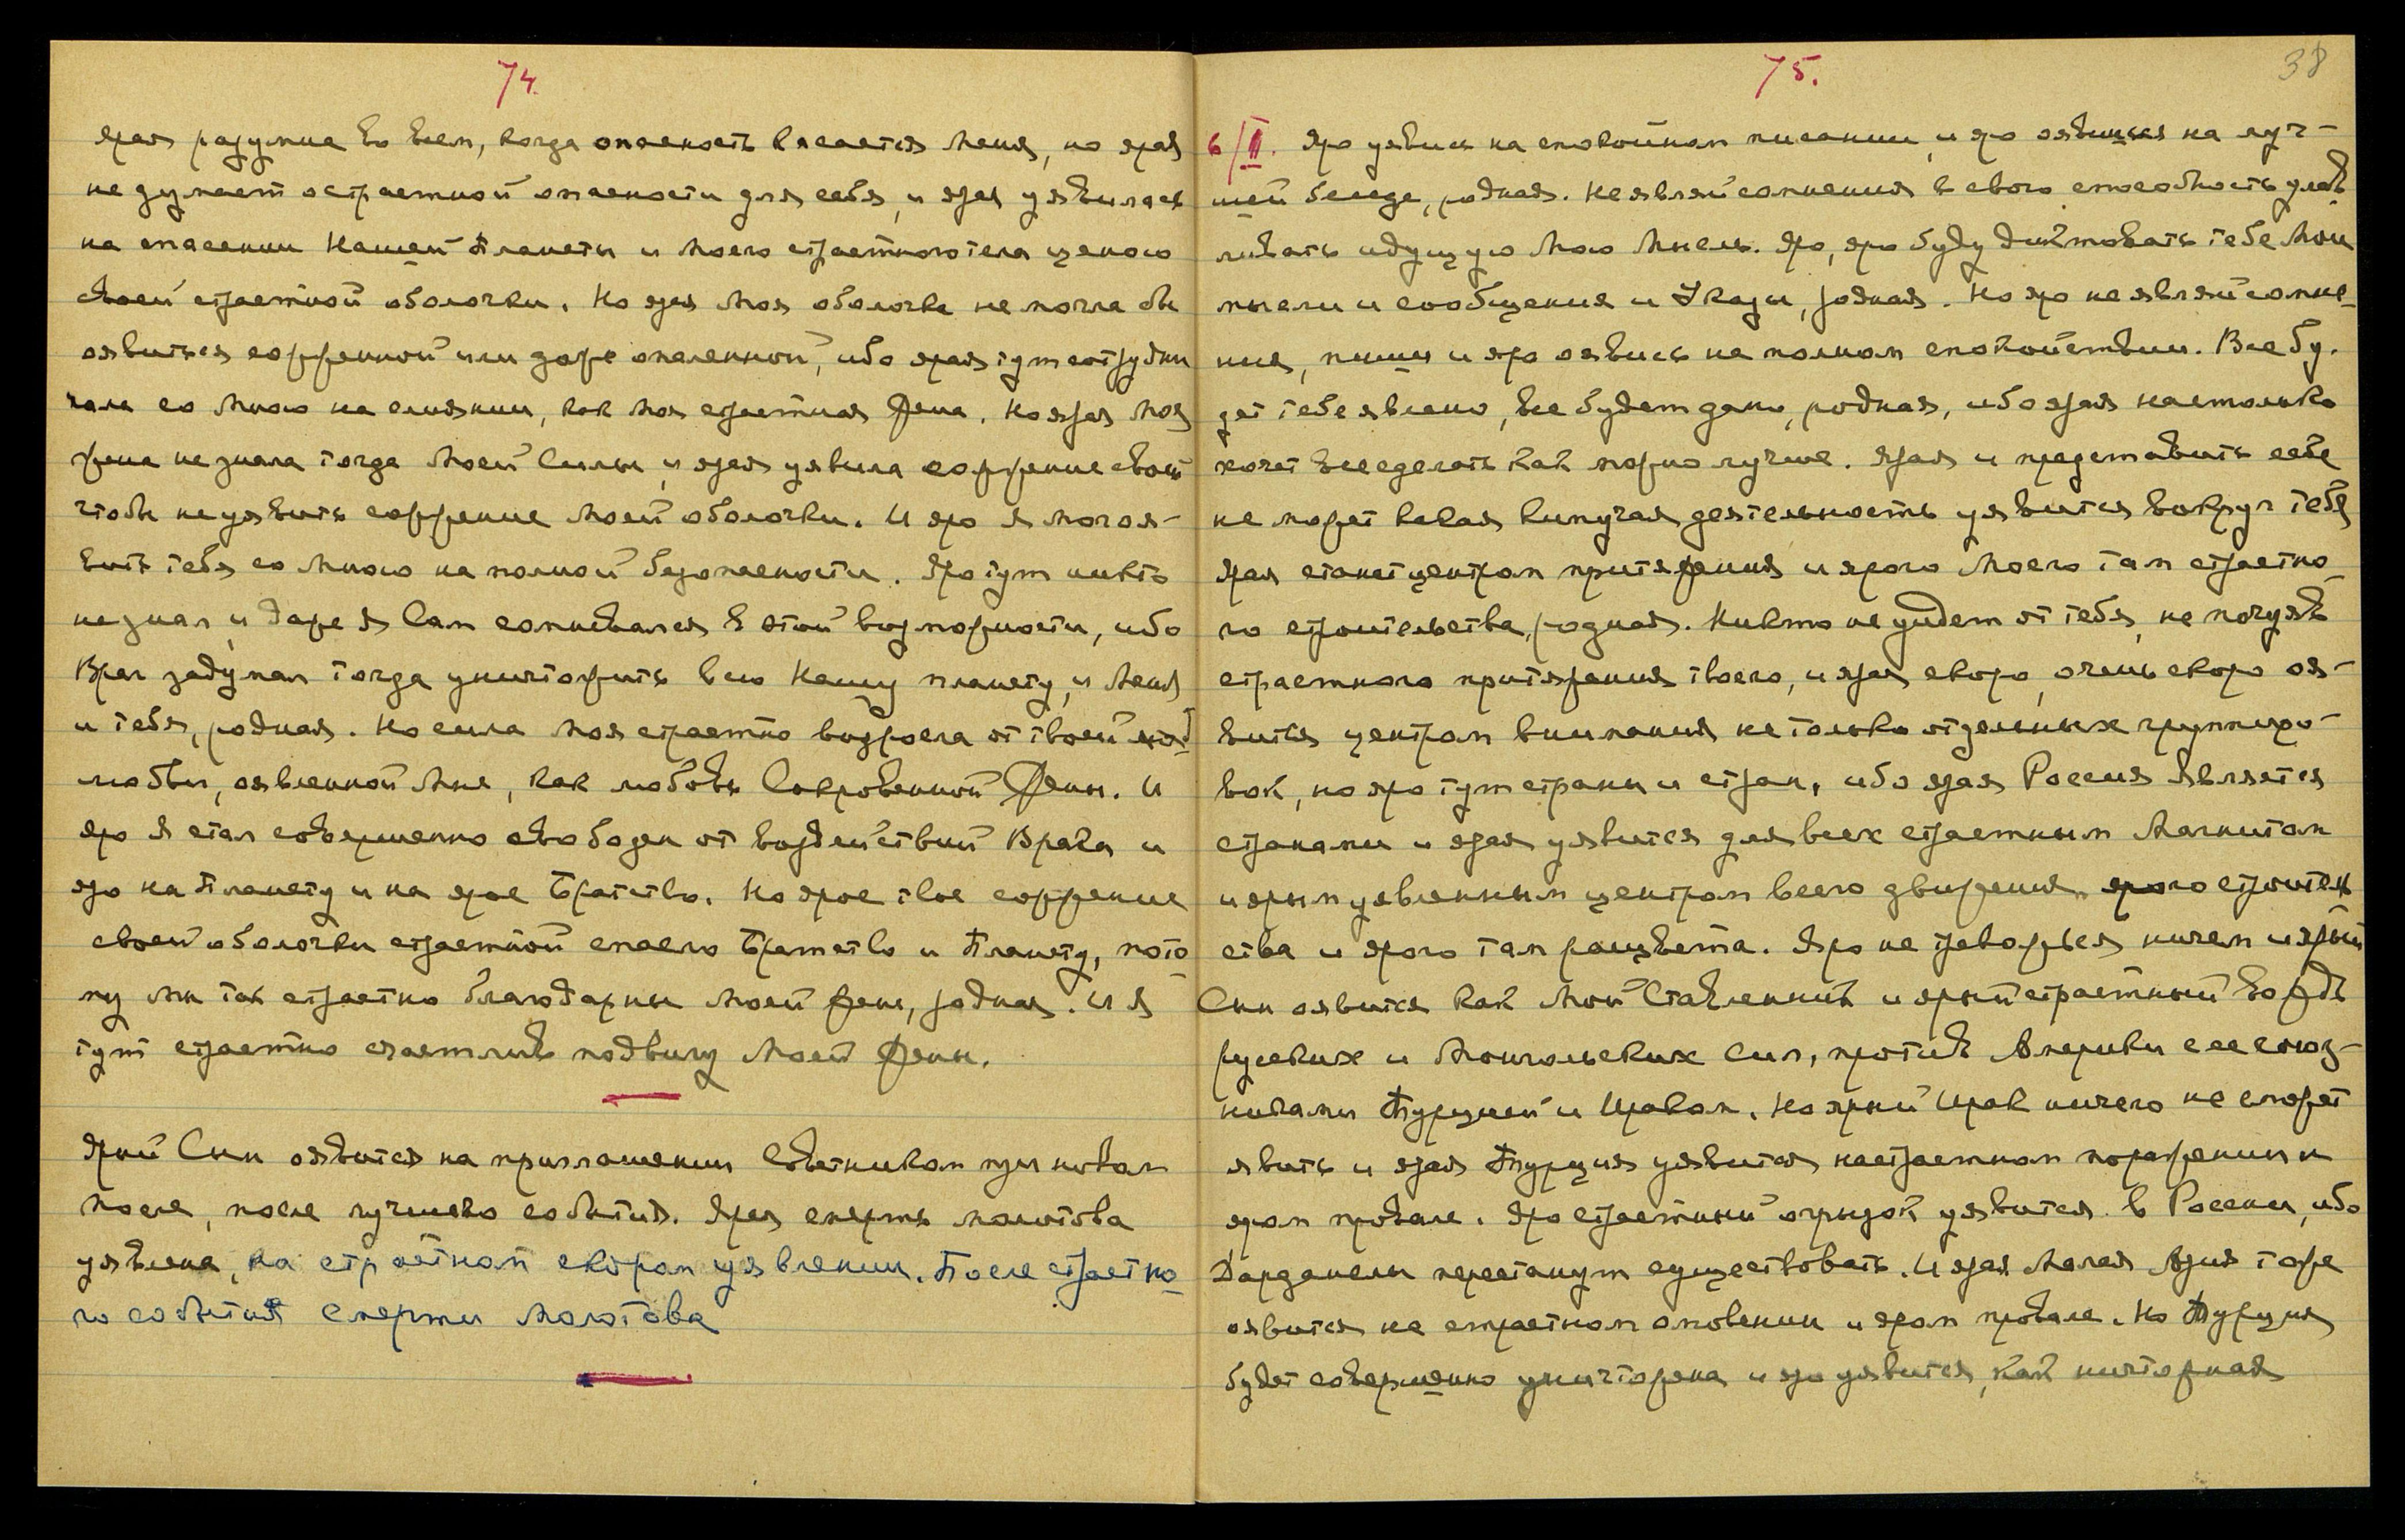 74.
Ярая разумна во всем, когда опасность касается Меня, но ярая
не думает о страстной опасности для себя, и ярая уявилась
на спасении Нашей Планеты и Моего страстного тела ценою
своей страстной оболочки. Но ярая Моя оболочка не могла бы
оявиться сожженной или даже опаленной, ибо ярая тут сотрудни
чала со Мною на слиянии, как Моя страстная Жена. Но ярая Моя
Жена не знала тогда Моей Силы, и ярая уявила сожжение своей
чтобы не уявить сожжение Моей оболочки. И яро Я мог оя-
вить тебя со Мною на полной безопасности. Яро тут никто
не знал, и даже Я Сам сомневался в этой возможности, ибо
Враг задумал тогда уничтожить всю Нашу планету, и Меня
и тебя, родная. Но сила Моя страстно возросла от твоей
любви, оявленной Мне, как любовь Сокровенной Жены. И
яро Я стал совершенно свободен от воздействий Врага и
яро на Планету и на ярое Братство. Но ярое твое сожжение
своей оболочки страстной спасло Братство и Планету, пото
му Мы так страстно благодарны Моей Жене, родная. И Я
тут страстно счастлив подвигу Моей Жены.
Ярый Сын оявится на приглашении Советником при новом
после, после лучшего события. Ярая смерть Молотова
уявлена, на страстном скором уявлении. После страстно
го события смерти Молотова
75.
38
6/II. Яро уявись на спокойном писании, и яро оявишься на луч-
шей беседе, родная. Не являй сомнения в свою способность улав
ливать идущую Мою Мысль. Яро, яро буду диктовать тебе Мои
мысли и сообщения и Указы, родная. Но яро не являй сомне-
ния, пиши и яро оявись на полном спокойствии. Все бу-
дет тебе явлено, все будет дано, родная, ибо ярая настолько
хочет все сделать как можно лучше. Ярая и представить себе
не может какая кипучая деятельность уявится вокруг тебя
Ярая станет центром притяжения и ярого Моего там страстно-
го строительства, родная. Никто не уйдет от тебя, не почуяв
страстного притяжения твоего, и ярая скоро, очень скоро оя-
вится центром внимания не только отдельных группиро-
вок, но яро тут страны и стран, ибо ярая Россия является
странами и ярая уявится для всех страстным Магнитом
и ярым уявленным центром всего движения, ярого строитель
ства и ярого там расцвета. Яро не тревожься ничем и ярый
Сын оявится как Мой Ставленник и ярый страстный Вождь
русских и Монгольских Сил, против Америки с ее союз-
никами Турцией и Ираком. Но ярый Ирак ничего не сможет
явить и ярая Турция уявится на страстном поражении и
яром провале. Яро страстный огрызок уявится в России, ибо
Дарданелы перестанут существовать. И ярая Малая Азия тоже
оявится на страстном обновлении и яром провале. Но Турция
будет совершенно уничтожена и яро уявится, как ничтожная